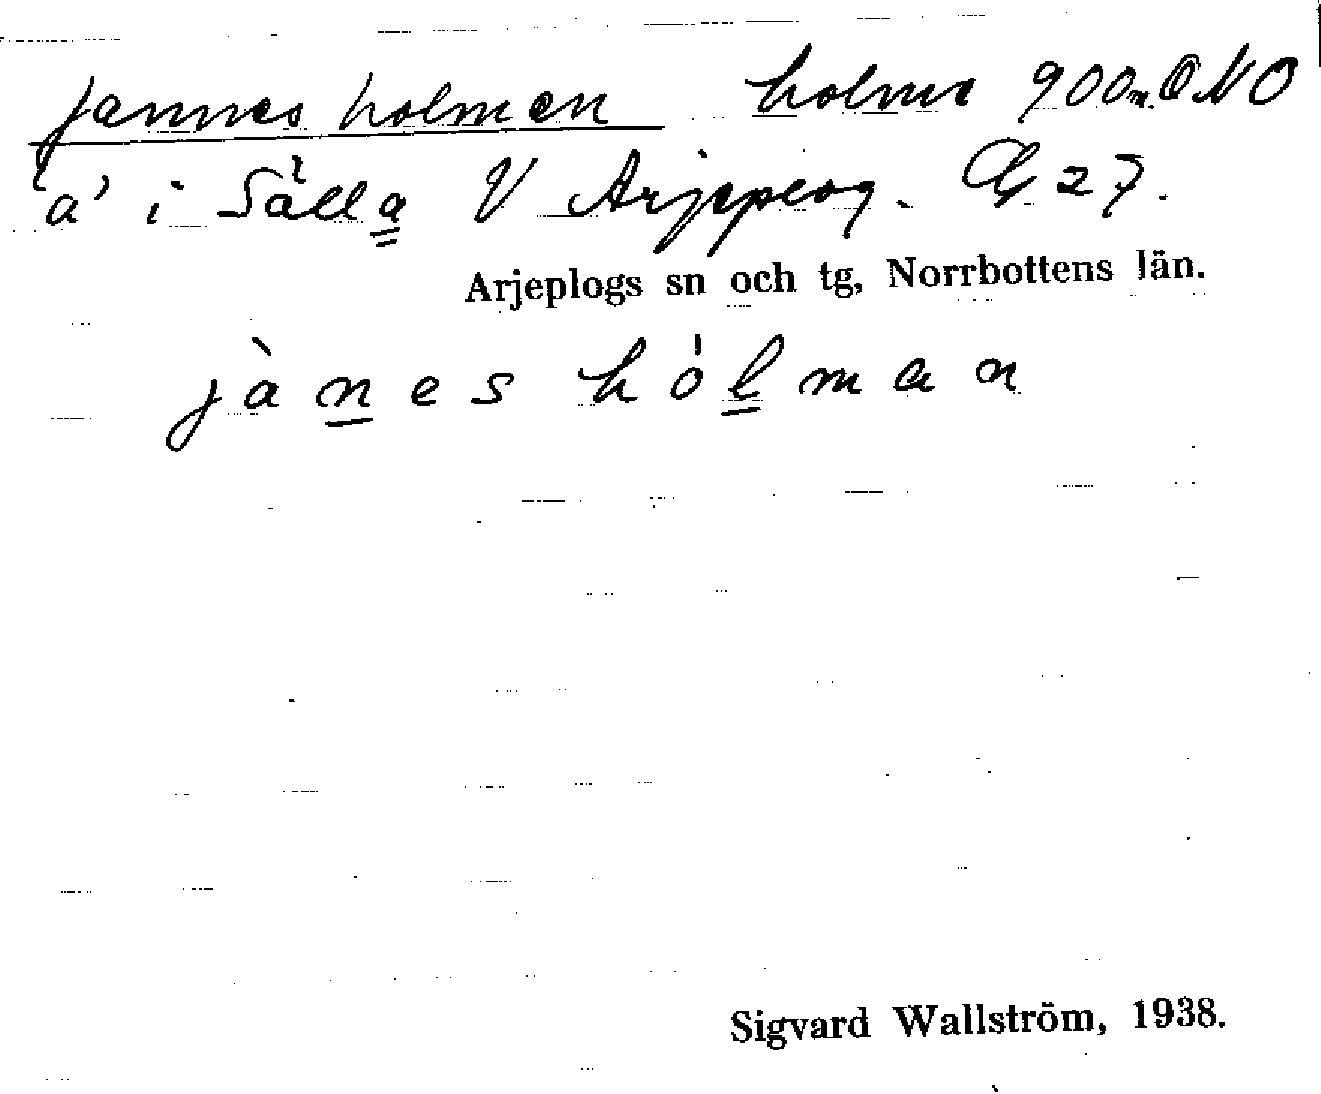 Jannesholmen holme 900m. ONO
a' i Sälla V Arjeplog. G 27.
Arjeplogs sn och tg, Norrbottens län.
jànes hólman
Sigvard Wallström, 1938.